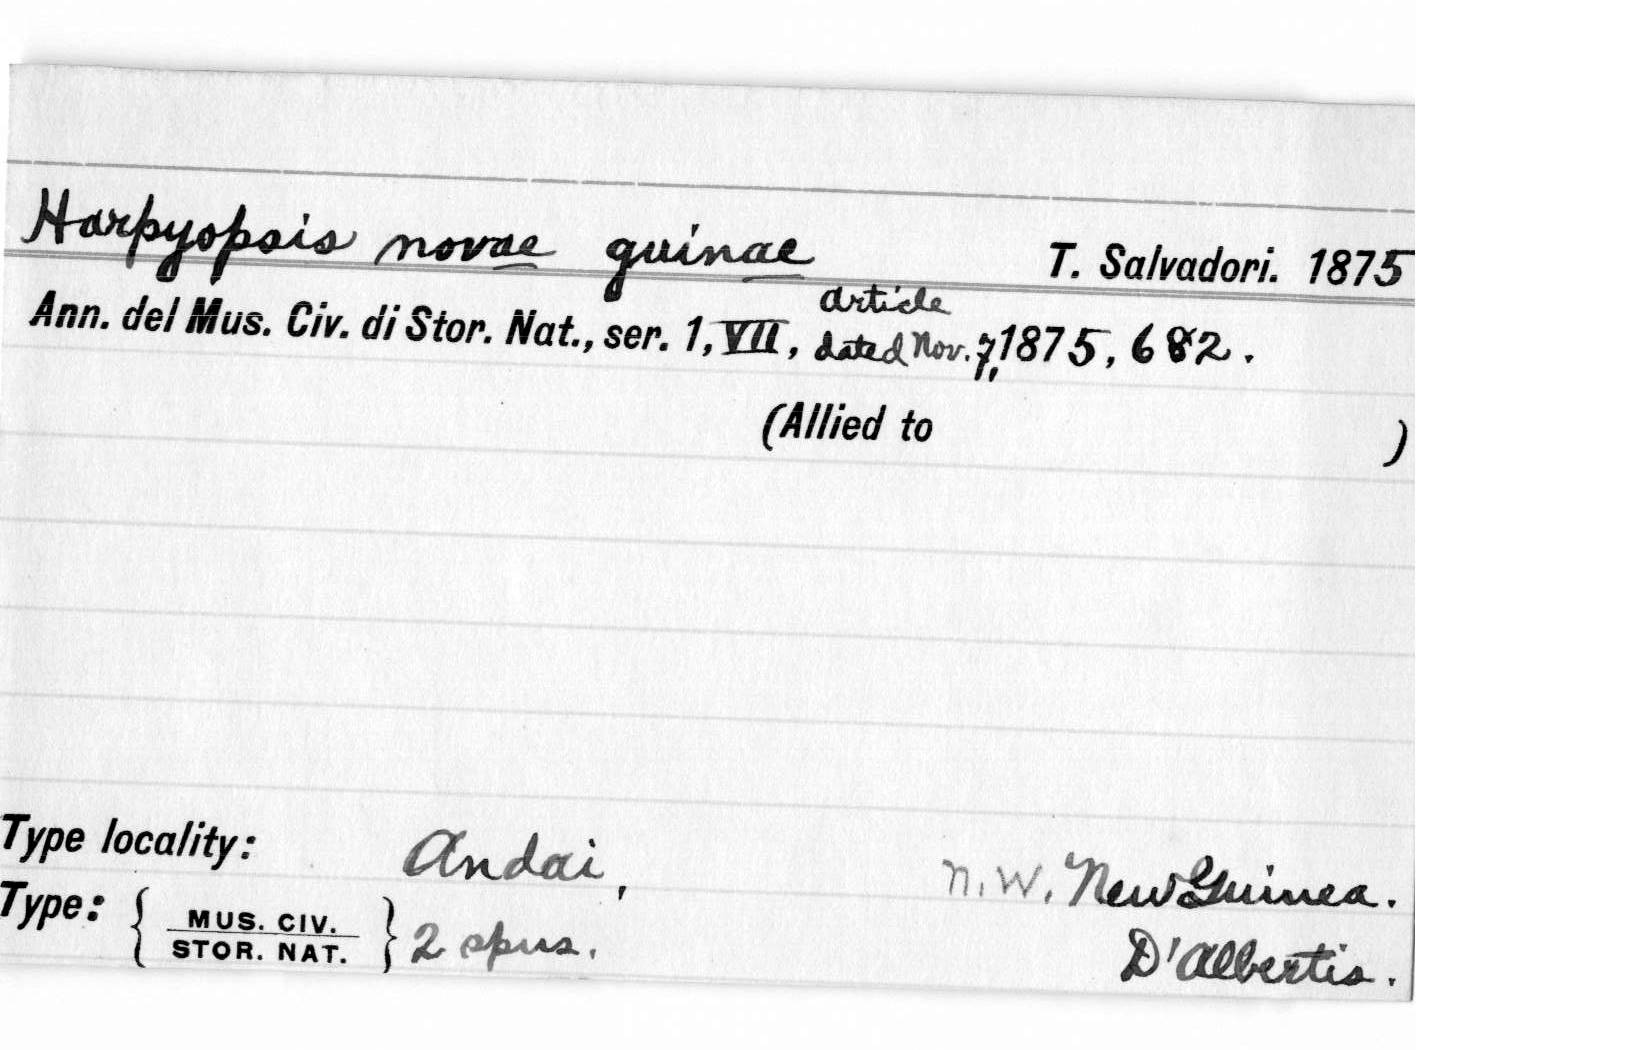 Harpyopsis novae guinae T. Salvadori. 1875
article
Ann. del Mus. Civ. di Stor. Nat., ser. 1, VII, dated Nov. 7, 1875, 682.
(Allied to )
Type locality: Andai, N. W. New Guinea.
Type: { MUS. CIV.
STOR. NAT. } 2 spns. D'Albertis.